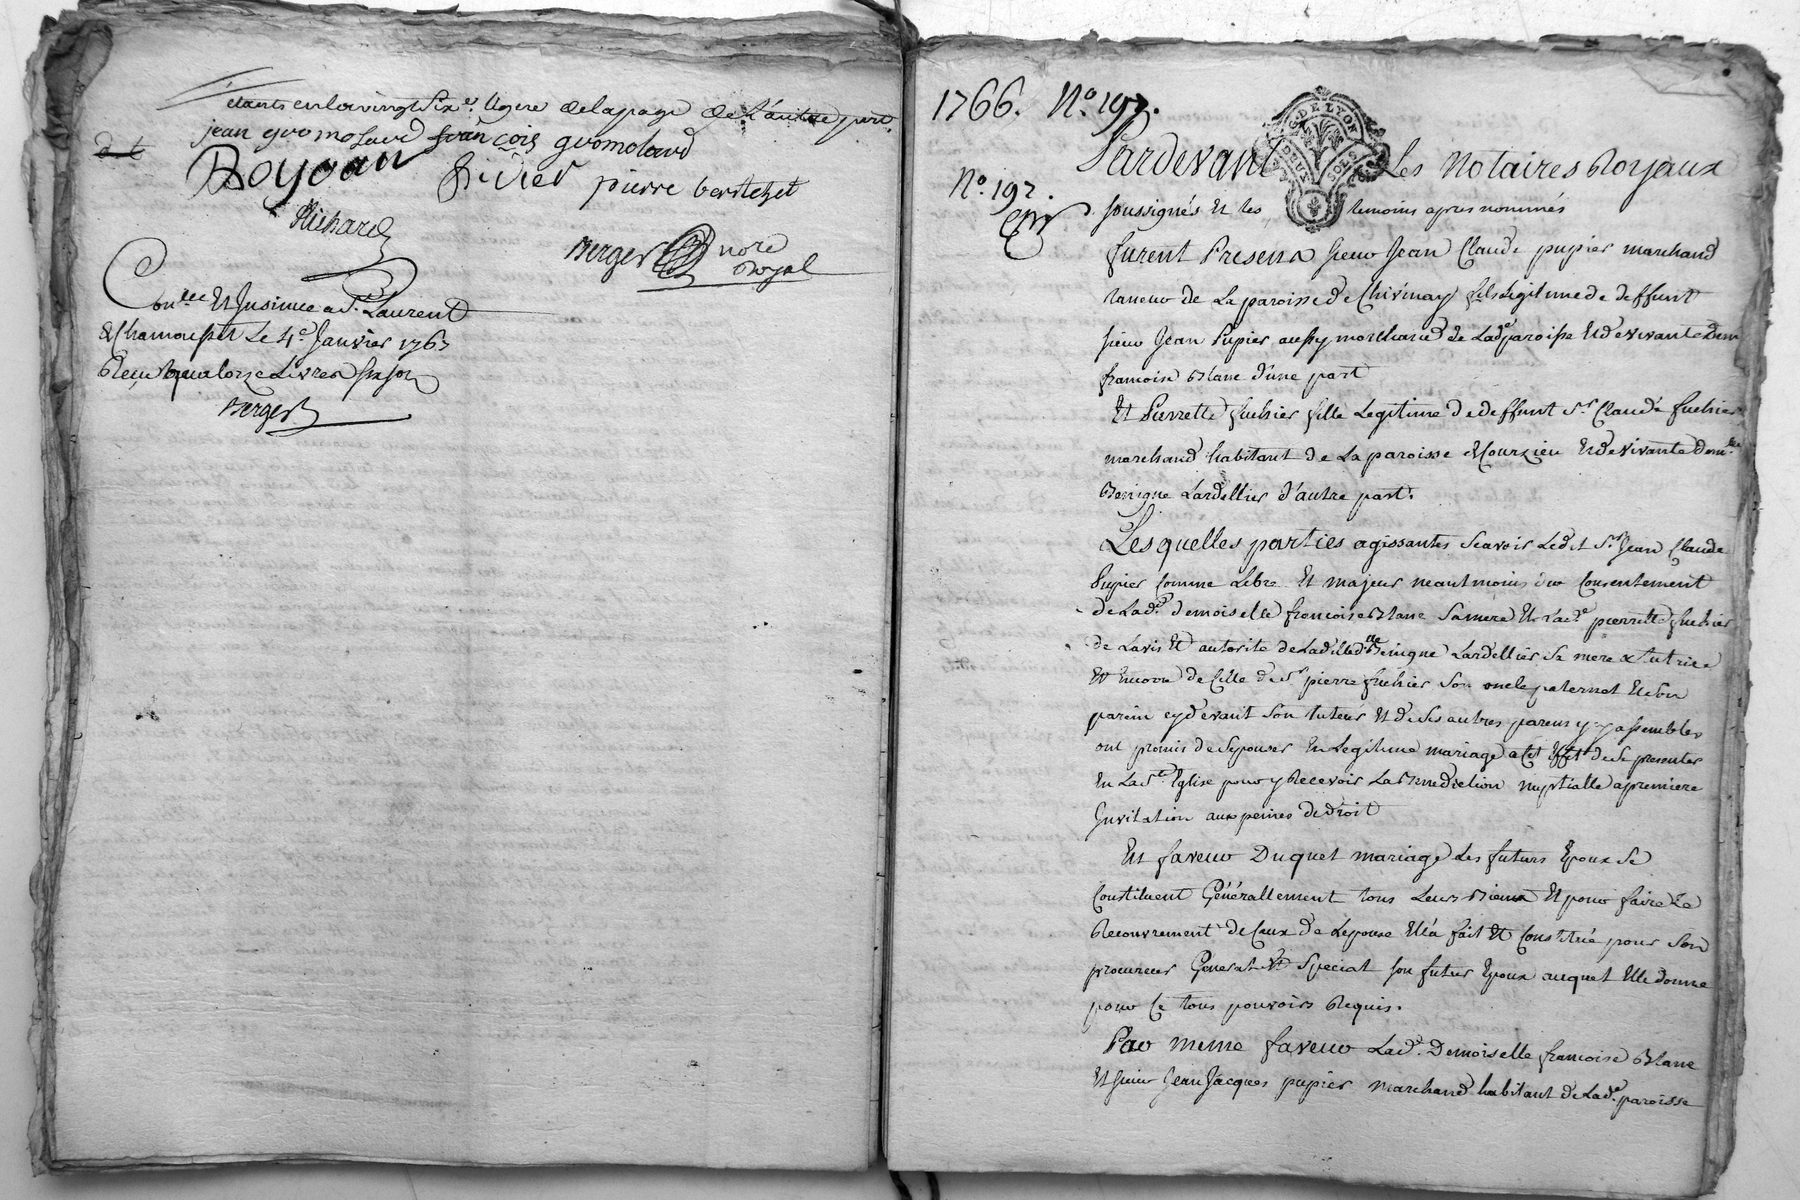 étants en la vingt six.e ligne de la page de l'autre part
jean guomolard françois guomolard
Royoan fivier pierre bertelzet
Richard
Berger no.re
Royal
Con.lee Et Insinuee a St. Laurent
de Chamousset Le 4.e Janvier 1767
Reçu quatorze Livres six sols
Berger
1766. N.o 197.
G. DE LYON
DEUX SOLS
Pardevant Les Notaires Royaux
N.o 197.
soussignés et les temoins apres nommés
furent Presens sieur Jean Claude pupier marchand
taneur de La paroisse de Chivinay fils Legitime de deffunt
sieur Jean Pupier aussy marchand de Lad.e paroisse Et de vivante dem
francoise Blanc d'une part
Et Pierrette fuchier fille Legitime de deffunt S.r Claude fuchier
marchand habitant de La paroisse de Courzieu Et de vivante dem.lle
Benigne Lardellier d'autre part.
Lesquelles parties agissantes Scavoir Ledit S.r Jean Claude
Pupier Comme Libre Et majeur neantmoins du Consentement
de Lad.e demoiselle francoise Blanc Sa mere Et Lad.e pierrette fuchier
de Lavis Et autorité de Ladite d.lle Benigne Lardellier Sa mere & tutrice
Et Encore de Celle de S.r pierre fuchier Son oncle paternel Et Son
parein cy devant Son tuteur Et de Ses autres parens icy assembles
ont promis de Sepouser En Legitime mariage a Cet Effet de Se presenter
En La S.te Eglise pour y Recevoir La Benediction nuptialle a premiere
Invitation aux peines de droit
En faveur Duquel mariage Les futurs Epoux Se
Constituent Générallement tous Leurs Biens Et pour faire Le
Recouvrement de Ceux de Lepouse Elle a fait Et Constitué pour Son
procureur General Et Special Son futur Epoux auquel Elle donne
pour Ce tous pouvoirs Requis.
Par meme faveur Lad.e Demoiselle francoise Blanc
Et sieur Jean Jacques pupier marchand habitant de Lad.e paroisse